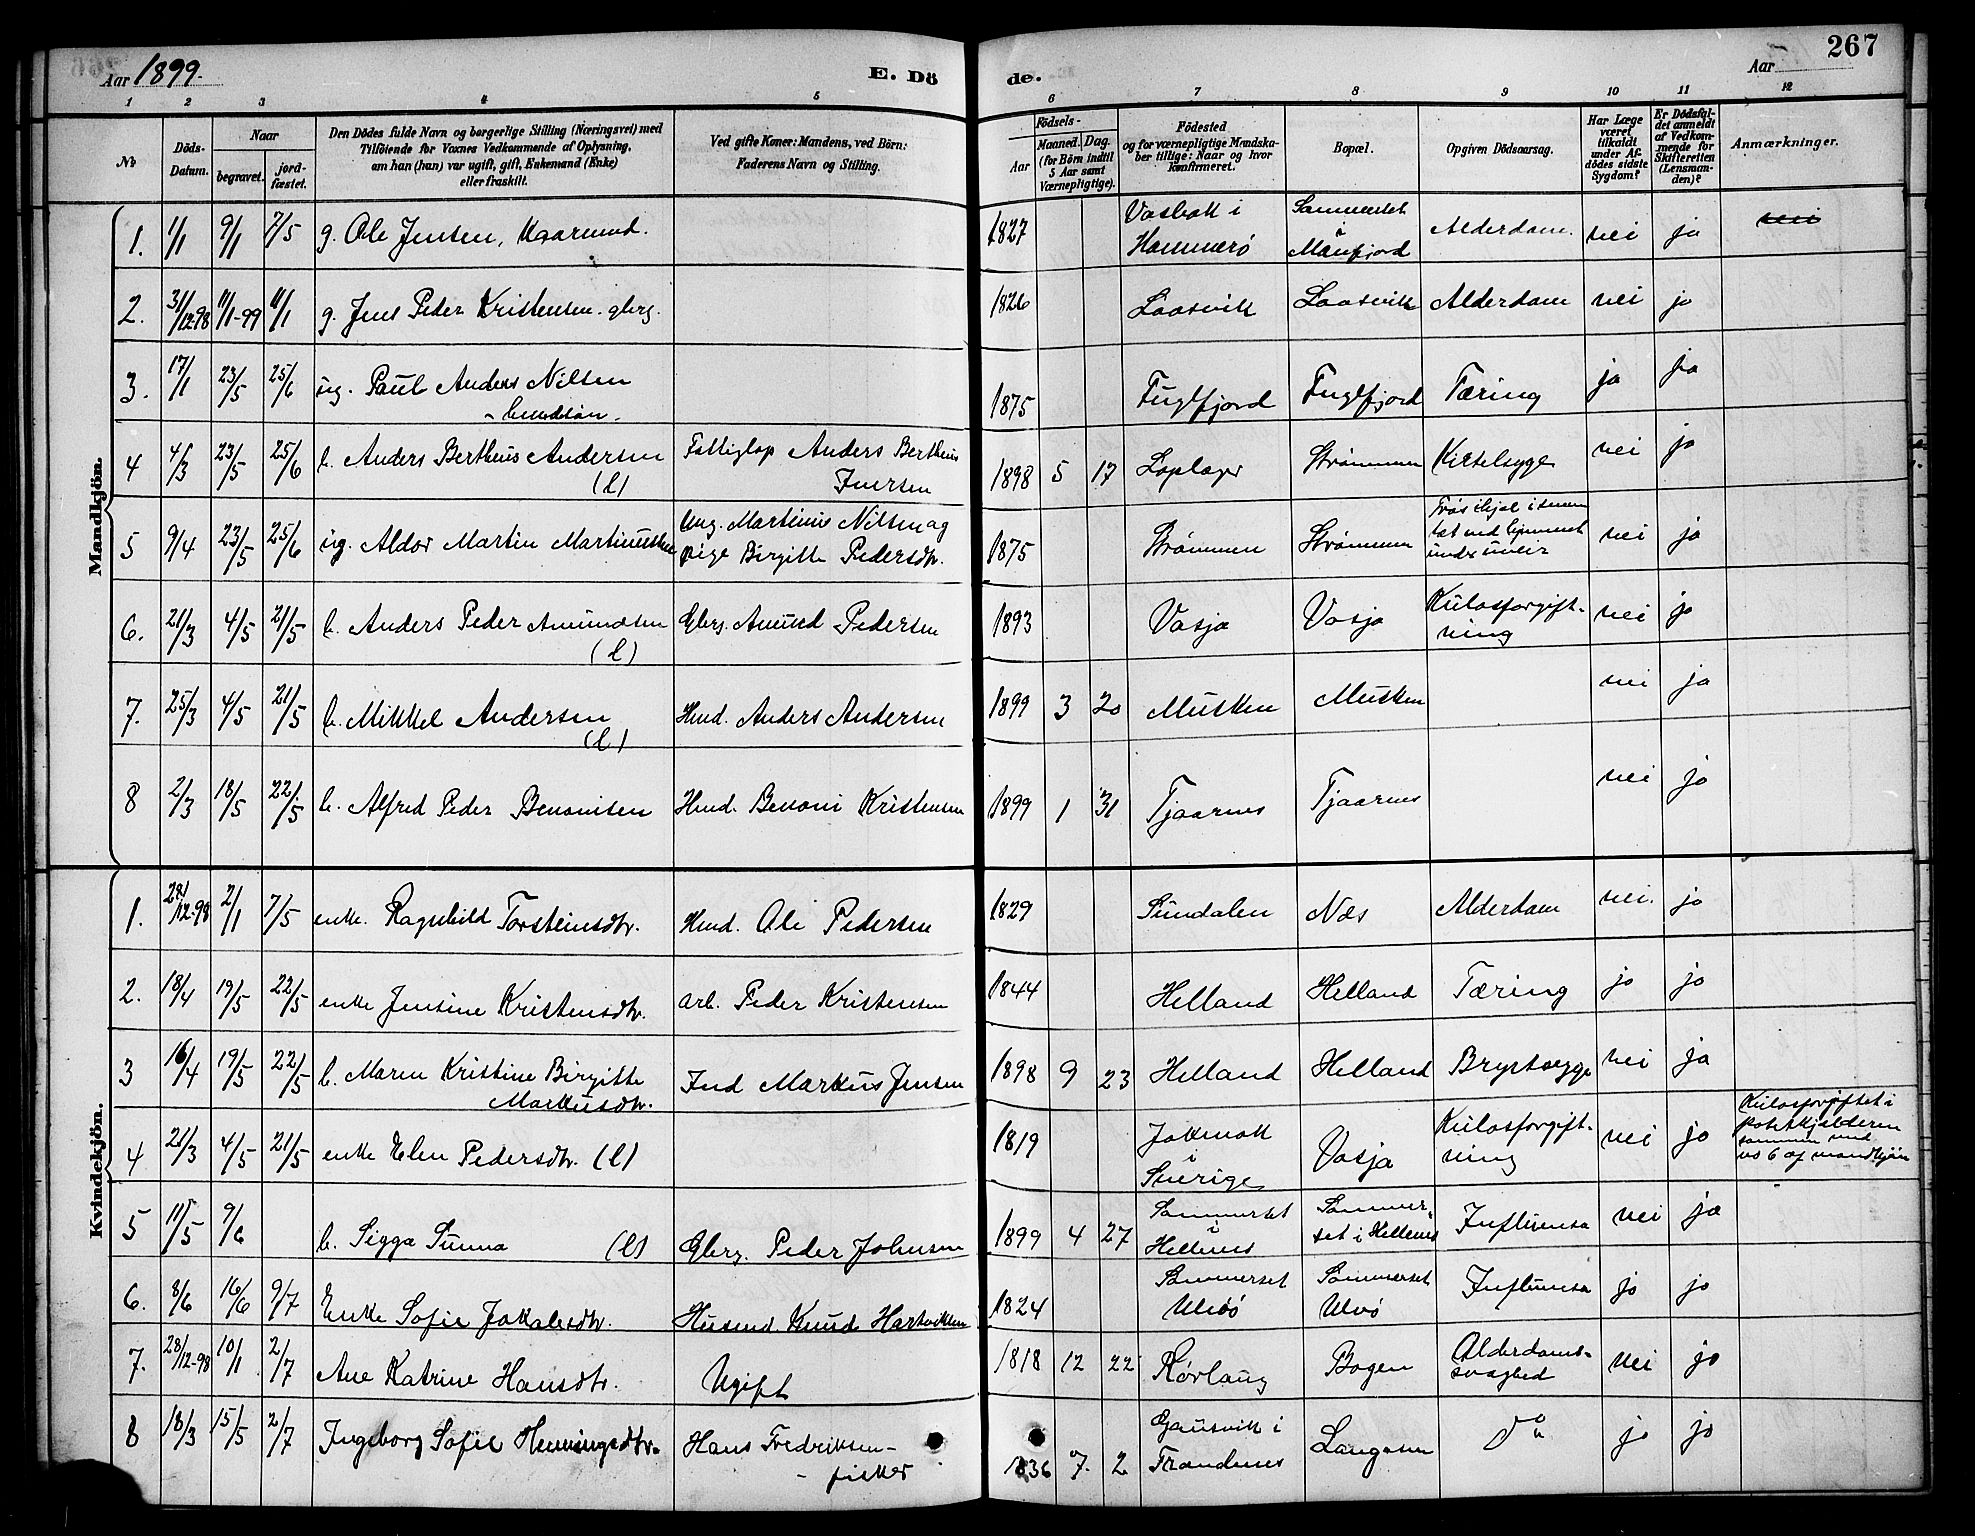 Aar 1899.
E. Dö
de.
Aar
267
1 2 3 4 5 6 7 8 9 10 11 12
No
Döds-Datum.
Naar
begravet.
jord-fæstet.
Den Dödes fulde Navn og borgerlige Stilling (Næringsvei) med
Tilföiende for Voxnes Vedkommende af Oplysning,
om han (hun) var ugift, gift, Enkemand (Enke)
eller fraskilt.
Ved gifte Koner: Mandens, ved Börn:
Faderens Navn og Stilling.
Födsels-
Aar
Maaned. Dag.
(for Börn indtil
5 Aar samt
Værnepligtige).
Födested
og for værnepligtige Mandska-
ber tillige: Naar og hvor
konfirmeret.
Bopæl.
Opgiven Dödsaarsag.
Har Læge
været
tilkaldt
under Af-
dödes sidste
Sygdom?
Er Dödsfal-
det anmeldt
af Vedkom-
mende for
Skifteretten
(Lensman-
den)?
Anmærkninger.
Mandkjön.
1. 1/1 9/1 7/5 g. Ole Jensen, Kaarmand. 1827 i Hammerø Alderdom. nei ja nei
2. 31/12-98 11/1-99 11/1 g. Jens Peder Kristensen. gbrg. 1826 Laasvik Laasvik Alderdom nei ja
3. 17/1 23/5 25/6 ug. Paul Anders Nilsen
1875 Fuglfjord Fuglfjord Tæring ja ja
4 4/3 23/5 25/6 b. Anders Bertheus Andersen Fattiglap Anders Bertheus
(l) Iversen 1898 5 17 Laplæger Strømmen Kirtelsyge nei ja
5 9/4 23/5 25/6 ug. Aldor Martin Martinussen Ung. Martinus Nilsen og
pige Birgitte Pedersdtr. 1875 Strømmen Strømmen Frøs ihjel i
under uveir nei ja
6. 21/3 4/5 21/5 b. Anders Peder Amundsen Gbrg. Amund Pedersen 1893 Vasja Vasja Kulosforgift-
(l) ning nei ja
7. 25/3 4/5 21/5 b. Mikkel Andersen Hmd. Anders Andersen 1899 3 20 Musken Musken nei ja
(l)
8 2/3 18/5 22/5 b. Alfred Peder Benonisen Hmd. Benoni Kristensen 1899 1 31 Tjaarnes Tjaarnes nei ja
Kvindekjön.
1. 28/12-98 2/1 7/5 enke. Ragnhild Torsteinsdtr. Hmd. Ole Pedersen 1829 Sundalen Næs Alderdom nei. ja
2. 18/4 19/5 22/5 enke Jensine Kristensdtr. arb. Peder Kristensen 1844 Helland Helland Tæring ja ja
3 16/4 19/5 22/5 b. Maren Kristine Birgitte
Markusdtr. Ind Markus Jensen 1898 9 23 Helland Helland Brystsyge nei ja
4 21/3 4/5 21/5 enke Elen Pedersdtr. (l) 1819 Jokmok
i
Sverige Vasja Kulosforgift-
ning nei ja Kulosforgiftet i
potetkjælderen
sammen med
no 6 af mandkjøn
5 11/5 9/6 b. Sigga Sunna (l) Gbrg. Peder Johnsen 1899 4 27 Sommerset
i
Hellemo Sommer-
set i Hellemo Influensa nei ja
6. 8/6 16/6 9/7 Enke Sofie Jakobsdtr. Husmd. Knud Hartviksen 1824 Sommerset
Ulvø Sommerset
Ulvø Influensa ja ja
7. 28/12-98 10/1 2/7 Ane Katrine Hansdtr. Ugift 1818 12 22 Rørvang Bogen Alderdoms-
svaghed nei ja
8 18/3 15/5 2/7 Ingeborg Sofie Henningsdtr. Hans Fredriksen -
- fisker 1836 7. 2 Gausvik i
Trondenes do ja ja